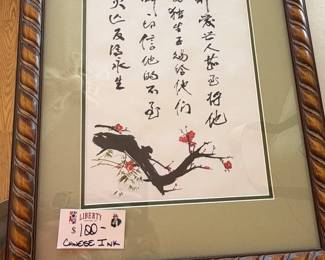 神愛世人甚至將他
的独生子赐给他們
叫一切信他的不至
灭亡反得永生
LIBERTY
$ 100-
CHINESE INK